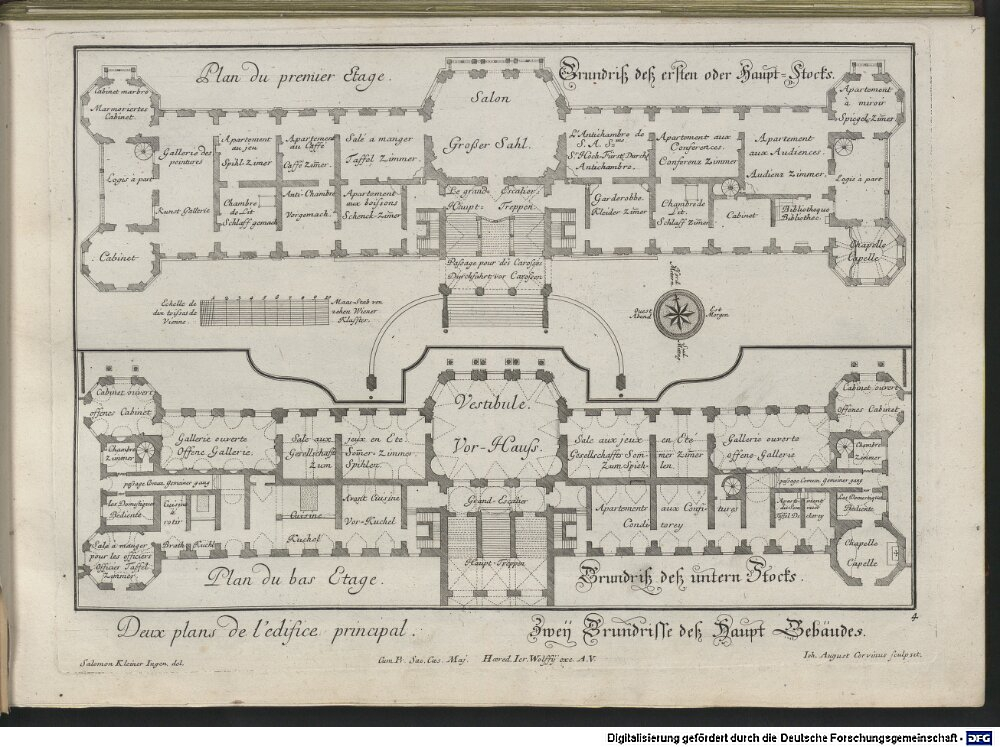 Plan du premier Etage.
Grundriß deß ersten oder Haupt-Stocks.
Cabinet marbro
Marmoriertes
Cabinet
Salon
Großer Sahl.
Apartement
à miroir
Spiegel-Zim̄er
Gallerie des
peintures
Kunst Gallerie
Logis à part
Apartement
au jeu
Spihl Zimer
Apartement
du Caffé
Caffé Zim̄er
Sale a manger
Taffel Zimmer
L'Antichambre de
Antichambro.
Apartement aux
Conferences.
Conferenz Zimmer
Apartement
aux Audiences.
Audienz Zimmer
Logis à part
Chambre
de Lit
Schlaff gemach
Anti-Chambre
Vorgemach.
Apartement
aux boissons
Schenck-Zimer
Le grand Escalier.
Haupt-Treppen
Garderobbe.
Kleider Zimer
Chambre de
Lit.
Schlaff Zimer
Cabinet
Bibliotheque
Bibliothec.
Cabinet
Chapelle
Capelle
Passage pour des Carosses
Durchfahrt vor Carossen
Echelle de
dix toises de
Vienne.
Maas-Stab von
zehen Wiener
Klaffter.
Nord
Ouest
Abend
Est
Morgen
Sud
Mittag
Cabinet ouvert
offenes Cabinet
Gallerie ouverte
Offene Gallerie.
Sale aux jeux en Eté
Gesellschaffts Som̄er-Zimmer
Zum Spihlen.
Vestibule.
Vor-Hauß.
Sale aux jeux en Eté
Gesellschaffts Som̄er Zim̄er
Zum Spielen.
Gallerie ouverte
offene Gallerie
Cabinet ouvert
offenes Cabinet
Chambre
Zimmer
Chambre
Zimmer
passage Comun. Gemeiner gang
passage Comun. Gemeiner gang
Les Domestiques
Bediente
Cuisine
à
rotir
Brath Kuchl
Cuisine
Kuchel
Avant Cuisine
Vor-Kuchel
Grand-Escalier
Haupt-Treppen
Apartements aux Confitures
Conditorey
Les Domestiques
Bediente
Sale à manger
pour les officiers
Officier Taffel
Zimmer.
Chapelle
Capelle
Plan du bas Etage.
Grundriß deß untern Stocks.
4
Deux plans de l'edifice principal.
Zweÿ Grundrisse deß Haupt Gebäudes.
Salomon Kleiner Ingen. del.
Cum Pr. Sac. Cæs. Maj.
Hæred. Ier. Wolffÿ exc. A.V.
Ioh. August Corvinus sculpsit.
Digitalisierung gefördert durch die Deutsche Forschungsgemeinschaft - DFG